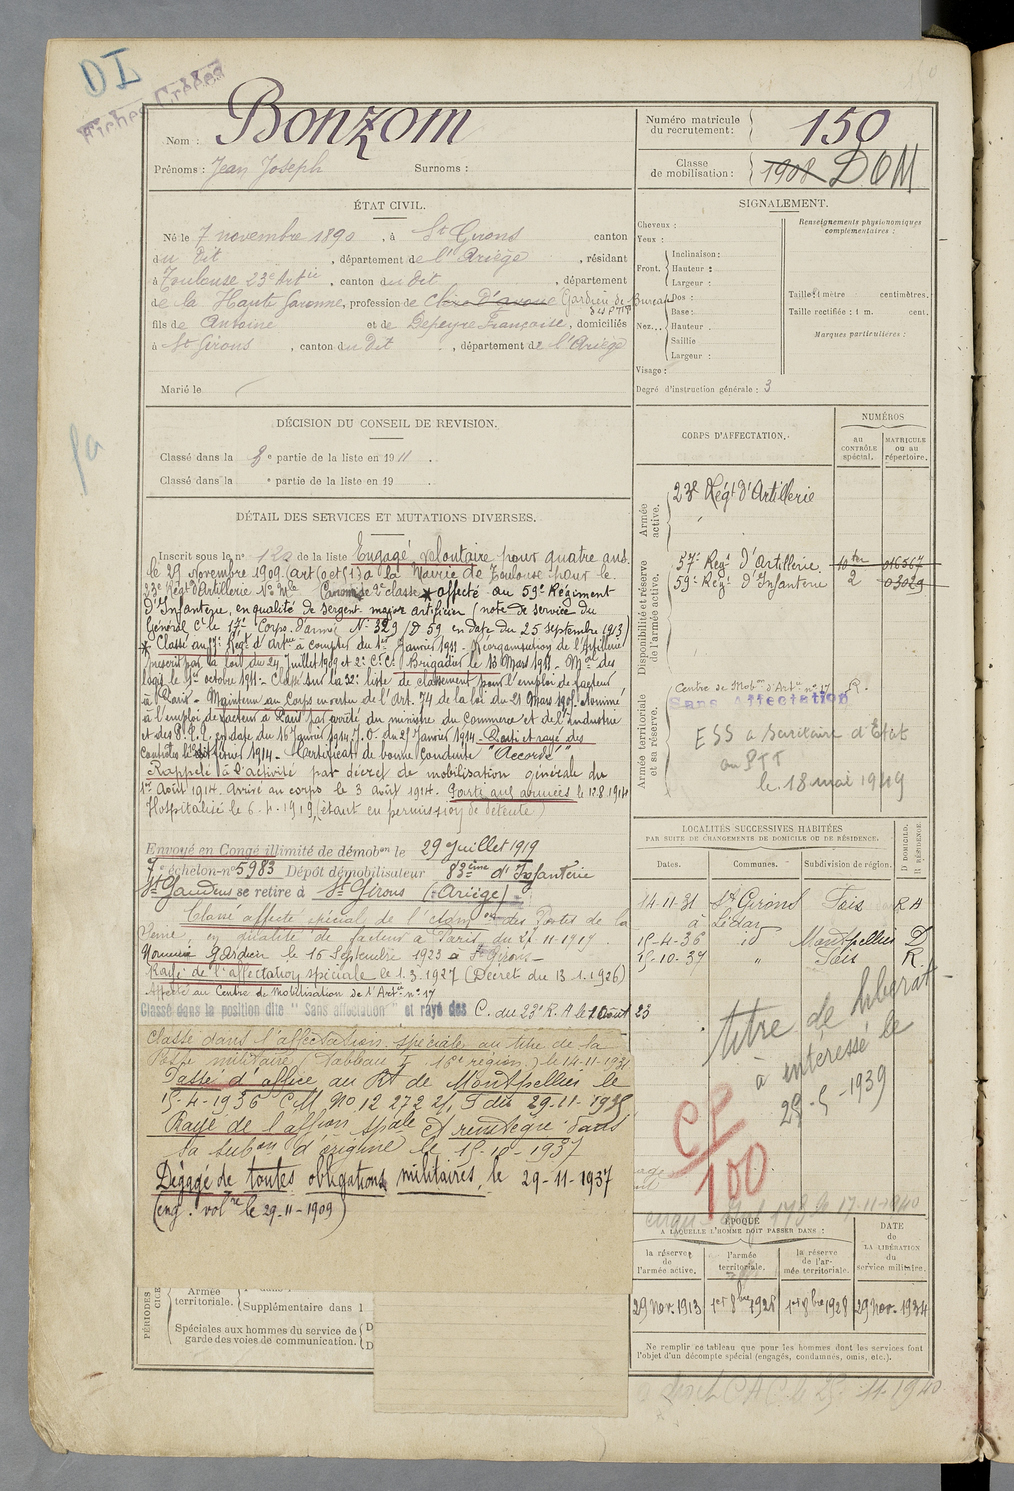 DI
Fiches Créées
Nom : Bonzom
Prénoms : Jean Joseph Surnoms :
Numéro matricule du recrutement : 150
Classe de mobilisation : 1908 DOM
ÉTAT CIVIL.
Né le 7 novembre 1890, à St Girons canton
du dit, département de l'Ariège, résidant
à Toulouse 23e Artie, canton du dit, département
de la Haute Garonne, profession de Clerc d'avoué Gardien de Bureau
des PTT
fils de Antoine et de Depeyre Françoise, domiciliés
à St Girons, canton du dit, département de l'Ariège
Marié le
SIGNALEMENT.
Cheveux :
Yeux :
Front. Inclinaison :
Hauteur :
Largeur :
Nez... Dos :
Base :
Hauteur
Saillie
Largeur :
Visage :
Renseignements physionomiques complémentaires :
Taille : 1 mètre centimètres.
Taille rectifiée : 1 m. cent.
Marques particulières :
Degré d'instruction générale : 3
DÉCISION DU CONSEIL DE REVISION.
Classé dans la 3e partie de la liste en 1911.
Classé dans la e partie de la liste en 19 .
DÉTAIL DES SERVICES ET MUTATIONS DIVERSES.
Inscrit sous le n° 122 de la liste Engagé volontaire pour quatre ans
le 29 novembre 1909 à la Mairie de Toulouse pour le
23e Régt d'Artillerie No Mle Canonnier de 2e classe * affecté au 59e Régiment
d'Infanterie, en qualité de sergent-major artificier (note de service du
Général Ct le 17e Corps d'armée N° 329/D 59 en date du 25 septembre 1913)
* Classé au 57e Régt d'Artie à compter du 1er Janvier 1911 - Réorganisation de l'Artillerie
prescrit par la loi du 24 Juillet 1909 et 2e C.C. Brigadier le 13 Mars 1911 - Mal des
logis le 1er octobre 1911 - Classé sur la 32e liste de classement pour l'emploi de facteur
à Paris - Maintenu au Corps en vertu de l'Art. 74 de la loi du 21 Mars 1905. Nommé
à l'emploi de facteur à Paris par arrêté du ministre du Commerce et de l'industrie
et des P.T.T. en date du 16 Janvier 1914. J.O. du 21 Janvier 1914. Parti et rayé des
contrôles le février 1914 - Certificat de bonne conduite "Accordé"
Rappelé à l'activité par décret de mobilisation générale du
1er Août 1914. Arrivé au corps le 3 août 1914. Parti aux armées le 12.8.1914
Hospitalisé le 6.4.1919, (étant en permission de détente)
Envoyé en Congé illimité de démobon le 29 Juillet 1919
7e échelon - n° 5983 Dépôt démobilisateur 83ème d'Infanterie
St Gaudens se retire à St Girons (Ariège)
Classé affecté spécial de l'exon des Postes de la
Seine, en qualité de facteur à Paris du 27.11.1919.
Nommé Gardien le 16 Septembre 1923 à St Girons -
Rayé de l'affectation spéciale le 1.3.1927 (Décret du 13.1.1926)
Affecté au Centre de Mobilisation de l'Artie n° 17
Classé dans la position dite "Sans affectation" et rayé des C. du 23e R.A le 1 Août 23
Classé dans l'affectation spéciale au titre de la
Poste militaire (tableau I 16e région) le 14-11-1931
Passé d'office au Rt de Montpellier le
15-4-1936 CM No 12 272 21, T du 29-11-1935
Rayé de l'affion spale et réintégré dans
sa subon d'origine le 15-10-1937
Dégagé de toutes obligations militaires, le 29-11-1937
(eng. volre le 29-11-1909)
CORPS D'AFFECTATION.
NUMÉROS
au contrôle spécial.
matricule ou au répertoire.
Armée active.
23e Régt d'Artillerie
Disponibilité et réserve de l'armée active.
57e Régt d'Artillerie 10ter 016567
59e Régt d'Infanterie 2 03029
Armée territoriale et sa réserve.
Centre de Mobon d'Artie n° 17 R.
Sans Affectation
ESS a Secrétaire d'État
au PTT
le 18 mai 1949
LOCALITÉS SUCCESSIVES HABITÉES
PAR SUITE DE CHANGEMENTS DE DOMICILE OU DE RÉSIDENCE.
Dates. Communes. Subdivision de région. D DOMICILE. R RÉSIDENCE
14-11-31 St Girons Foix R A
à Lédar
15-4-36 id Montpellier D
15-10-37 " Foix R.
titre de liberat
à intéressé le
29-5-1939
CP/100
17-11-1940
ÉPOQUE
A LAQUELLE L'HOMME DOIT PASSER DANS :
la réserve de l'armée active.
l'armée territoriale.
la réserve de l'armée territoriale.
DATE de LA LIBÉRATION du service militaire.
29 Nov. 1913 1er 8bre 1928 29 Nov. 1934
Ne remplir ce tableau que pour les hommes dont les services font
l'objet d'un décompte spécial (engagés, condamnés, omis, etc.).
PÉRIODES
Armée territoriale. Supplémentaire dans l
Spéciales aux hommes du service de garde des voies de communication.
11-1940